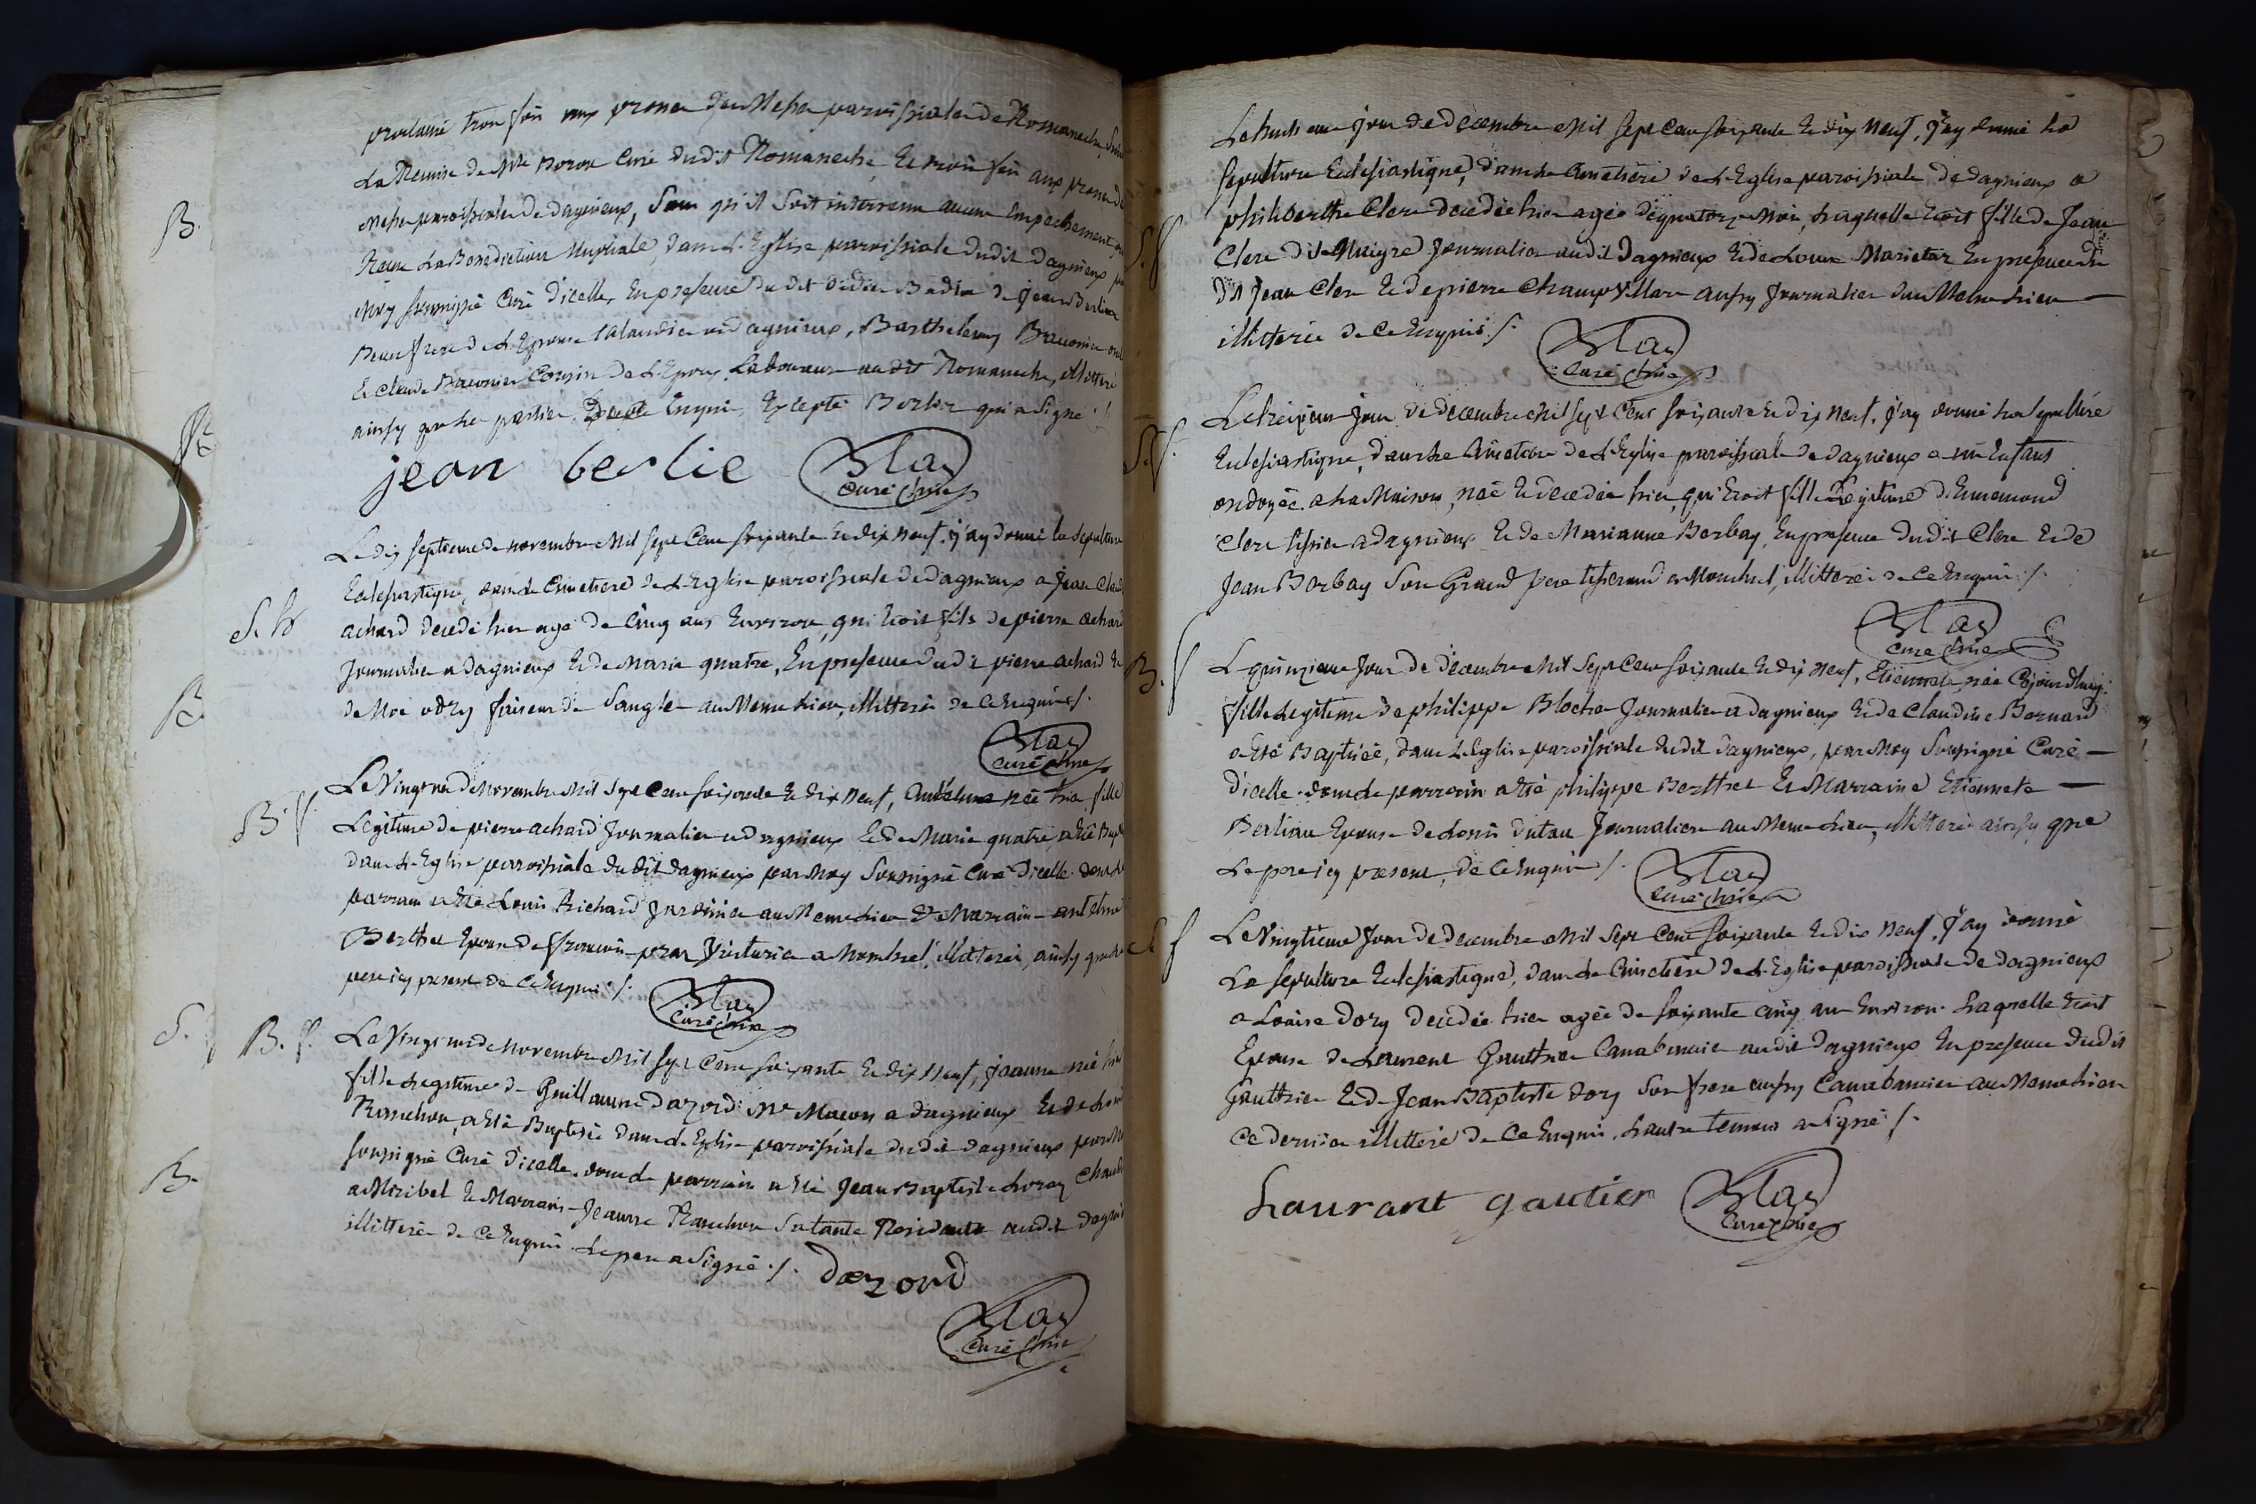 proclamé trois fois aux prones des Messes paroissiales de Romaneche,
La Remise de Mre Curé dudit Romaneche, et trois fois aux prones de
Messes paroissiales de dagnieux, Sans qu'il soit intervenu aucun Empechement
Reçu La Benediction Nuptiale, dans L'Eglise paroissiale dudit dagnieux
Moy soussigné Curé d'icelle, En presence du dit Jean Berlier
Beau frere de L'Epouse a dagnieux, Barthelemy
Et Claude Cousin de L'Epoux, Laboureur audit Romaneche, illitteré
ainsy que les parties de ce Enquis, Excepté Berlie qui a Signé
jean berlie
Blay
Curé
S. h
Le dix septieme de novembre Mil sept Cens soixante et dix neuf, j'ay donné la sepulture
Eclesiastique, dans le Cimetiere de L'Eglise paroissiale de dagnieux a Jean Claude
achard decedé hier agé de Cinq ans Environ, qui etoit fils de pierre achard
Journalier a dagnieux et de Marie quatre, En presence dudit pierre achard et
de faiseur de Sangles au Meme Lieu, illitterés de Ce Enquis /.
Blay
Curé
B. f.
Le Vingt de Novembre Mil Sept Cens soixante et dix neuf, née hier fille
Legitime de pierre achard Journalier a dagnieux et de Marie quatre a été
dans L'Eglise paroissiale du dit dagnieux par Moy Soussigné Curé d'icelle. dont le
parrain a été Louis Richard au Meme Lieu et Marraine
Berthet Epouse de françois a Montluel, illitterés, ainsy que le
pere icy present de Ce Enquis /.
Blay
Curé
B. f.
Le Vingt de Novembre Mil Sept Cens soixante et dix neuf, Jeanne née hier
fille Legitime de Guillaume dazord Me Maçon a dagnieux et de
Ranchon, a été Baptisée dans L'Eglise paroissiale du dit dagnieux par Moy
soussigné Curé d'icelle. dont le parrain a été Jean Baptiste
a Miribel et Marraine Jeanne Ranchon Sa tante Residante audit dagnieux
illitterés de Ce Enquis Le pere a Signé /.
dazord
Blay
Curé
S. f
Le huitieme jour de decembre Mil sept Cens soixante et dix neuf, j'ay donné La
sepulture Eclesiastique, dans le Cimetiere de L'Eglise paroissiale de dagnieux a
philiberthe Clerc decedée hier agée de quatorze Mois, Laquelle etoit fille de Jean
Clerc dit Maigre Journalier audit dagnieux et de Louise En presence du
dit Jean Clerc et de pierre aussy Journalier au Meme Lieu
illitterés de Ce Enquis /.
Blay
Curé
S. f.
Le treizieme Jour de decembre Mil sept Cens soixante et dix neuf, j'ay donné La sepulture
Eclesiastique, dans le Cimetiere de L'Eglise paroissiale de dagnieux a un Enfant
ondoyée a la Maison, née et decedée hier, qui etoit fille Legitime d'Ennemond
Clerc tissier a dagnieux et de Marianne Barbay, En presence dudit Clerc et de
Jean Barbay Son Grand pere tisserand a Montluel, illitterés de Ce Enquis /.
Blay
Curé
B. f
Le quinzieme Jour de decembre Mil Sept Cens soixante et dix neuf, Etiennete, née Cejourdhuy
fille Legitime de philippe Journalier a dagnieux et de Claudine Bernard
a été Baptisée, dans L'Eglise paroissiale dudit dagnieux, par Moy Soussigné Curé
d'icelle. dont le parrain a été philippe Berthet et Marraine Etiennete
Epouse de Louis dutau Journalier au Meme Lieu, illitterés ainsy que
Le pere icy present, de Ce Enquis /.
Blay
Curé
S. f
Le Vingtieme Jour de decembre Mil Sept Cens soixante et dix neuf, j'ay donné
La sepulture Eclesiastique, dans le Cimetiere de L'Eglise paroissiale de dagnieux
a Louise dory decedée hier agée de soixante cinq ans Environ. Laquelle etoit
Epouse de Laurent Gauthier Canabassier audit dagnieux En presence dudit
Gauthier et de Jean Baptiste dory Son frere aussy Canabassier au Meme Lieu
Ce dernier illitteré de Ce Enquis, L'autre temoin a Signé /.
Laurant gautier
Blay
Curé